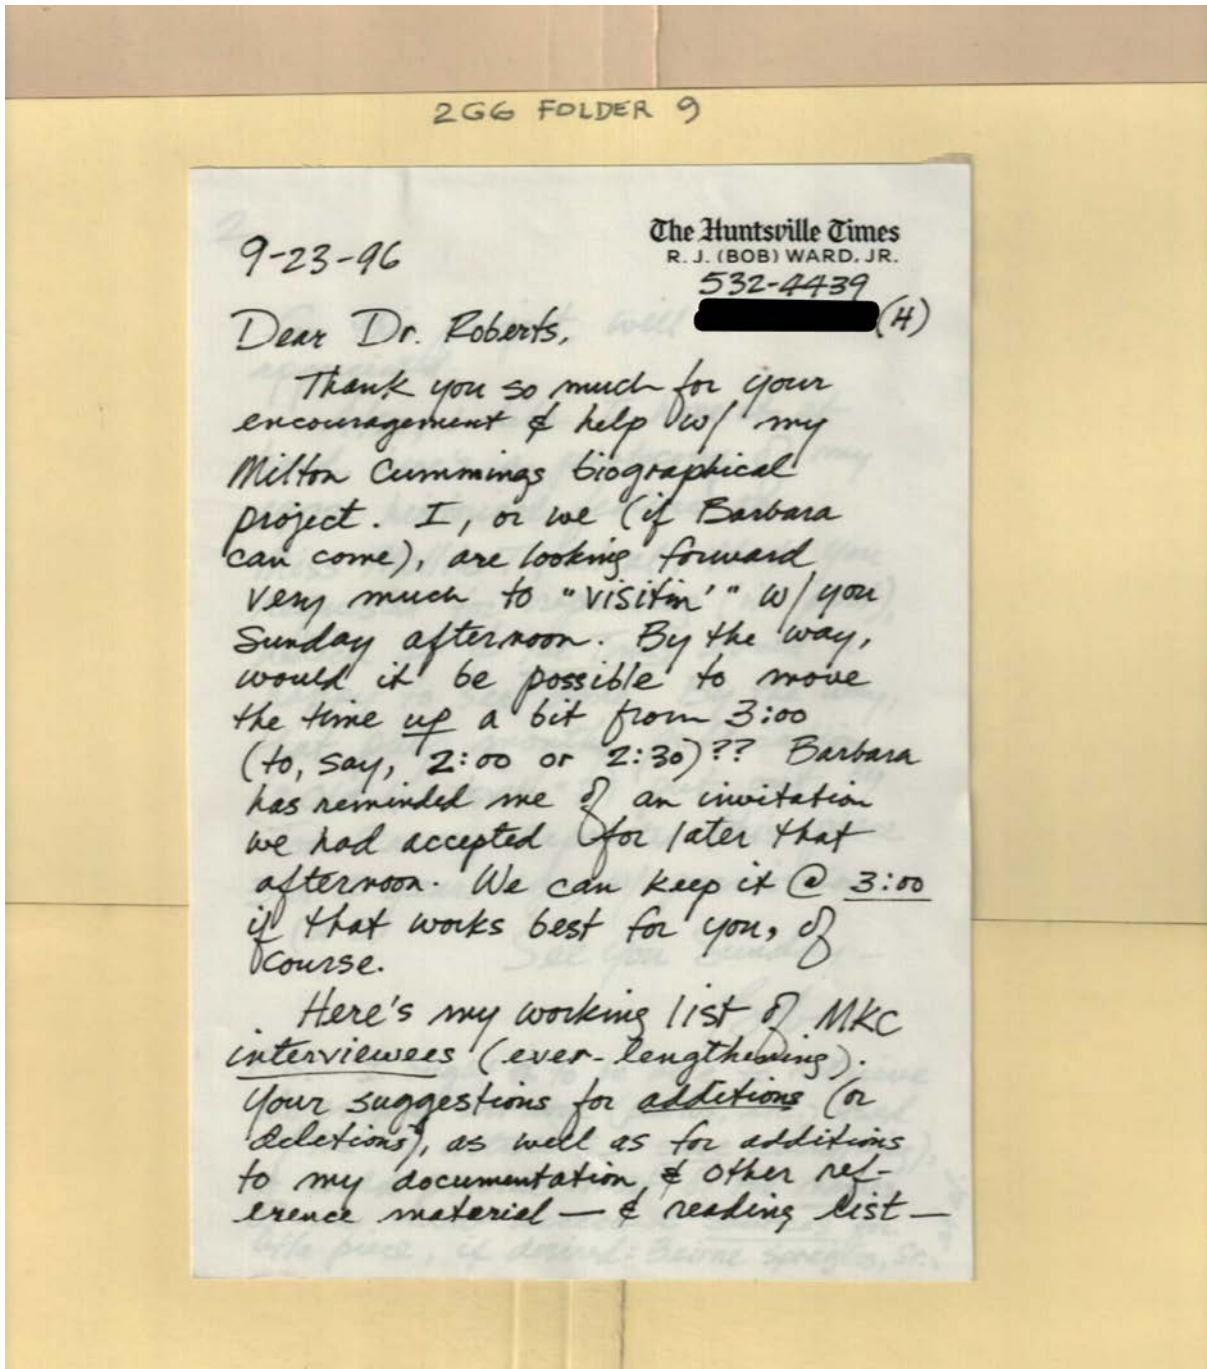 2GG FOLDER 9
The Huntsville Times
R. J. (BOB) WARD, JR.
9-23-96
532-4439
(H)
Dear Dr. Roberts,
Thank you so much for your
encouragement & help w/ my
Milton Cummings biographical
project. I, or we (if Barbara
can come), are looking forward
very much to "visitin'" w/ you
Sunday afternoon. By the way,
would it be possible to move
the time up a bit from 3:00
(to, say, 2:00 or 2:30)?? Barbara
has reminded me of an invitation
we had accepted for later that
afternoon. We can keep it @ 3:00
if that works best for you, of
course.
Here's my working list of MKC
interviewees (ever-lengthening).
Your suggestions for additions (or
deletions), as well as for additions
to my documentation & other ref-
erence material — & reading list —